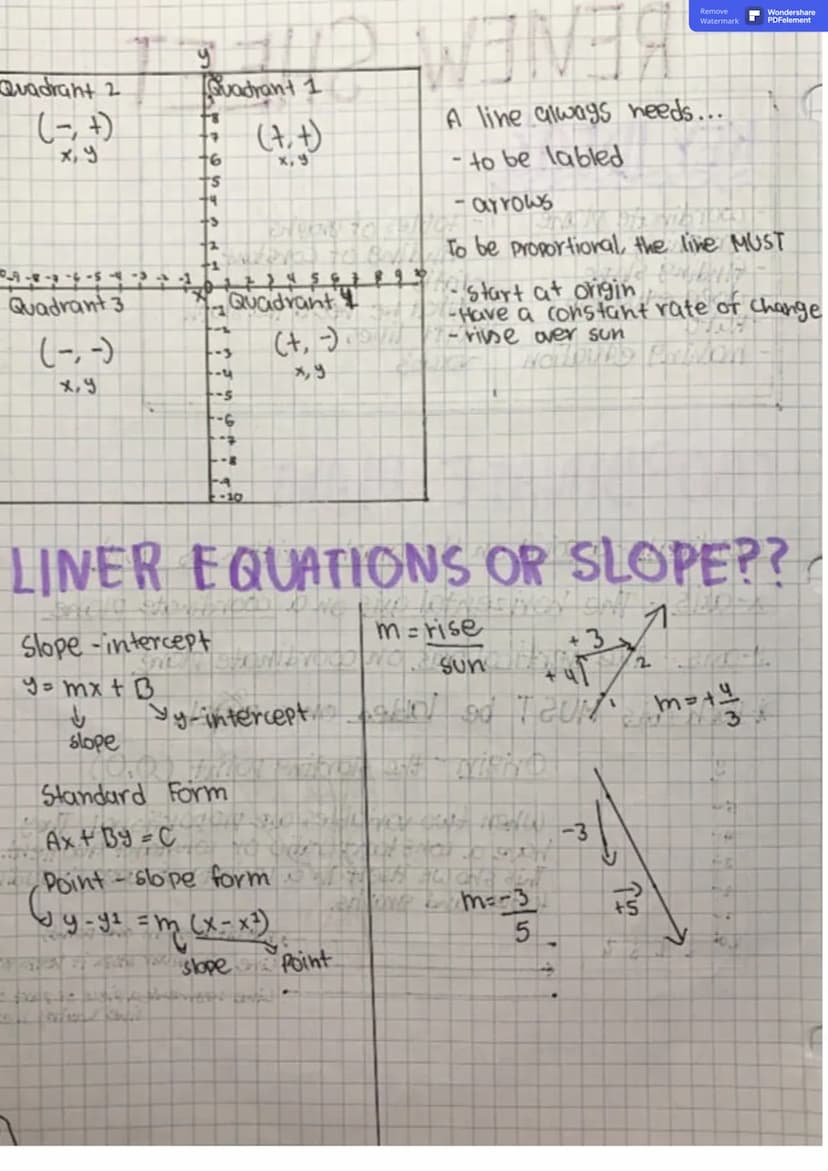 Remove
Watermark
Wondershare
PDFelement
y
Quadrant 2
(-, +)
x, y
Quadrant 1
(+, +)
x, y
8
7
6
5
4
3
2
1
-9 -8 -7 -6 -5 -4 -3 -2 -1
1 2 3 4 5 6 7 8 9 10
x
Quadrant 3
(-, -)
x, y
Quadrant 4
(+, -)
x, y
-1
-2
-3
-4
-5
-6
-7
-8
-9
-10
A line always needs...
- to be labled
- arrows
To be proportional, the line MUST
- start at origin
- Have a constant rate of change
- rise over sun
LINER EQUATIONS OR SLOPE??
Slope-intercept
y = mx + B
slope
y-intercept
Standard Form
Ax + By = C
Point-slope form
y - y¹ = m (x - x¹)
slope
point
m = rise
sun
+3
+4
2
1
m = + 4/3
-3
+5
m = -3
5